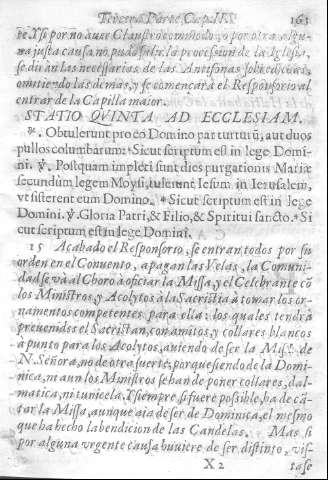 Tercera Parte, Cap. 163
re. Y si por no auer Claustro commodo, o por otra algu-
na justa causa, no pudo salir la procession de la Iglesia,
se diràn las necessarias de las Antifonas sobredichas,
omitiendo las demàs, y se començarà el Responsorio al
entrar de la Capilla maior.
STATIO QVINTA AD ECCLESIAM.
℟. Obtulerunt pro eo Domino par turturũ, aut duos
pullos columbarum: *Sicut scriptum est in lege Domi-
ni. ℣. Postquam impleti sunt dies purgationis Mariæ
secundùm legem Moysi, tulerunt Iesum in Ierusalem,
vt sisterent eum Domino. *Sicut scriptum est in lege
Domini. ℣. Gloria Patri, & Filio, & Spiritui sancto. *Si
cut scriptum est in lege Domini.
15 Acabado el Responsorio, se entran todos por su
orden en el Conuento, apagan las Velas, la Comuni-
dad se và al Choro à oficiar la Missa, y el Celebrante cõ
los Ministros, y Acolytos à la Sacristia à tomar los or-
namentos competentes para ella: los quales tendrà
preuenidos el Sacristan, con amitos, y collares blancos
à punto para los Acolytos, auiendo de ser la Missa de
N. Señora, no de otra suerte; porque siendo de la Domi-
nica, ni aun los Ministros se han de poner collares, dal-
matica, ni tunicela. Y siempre si fuere possible, ha de cã-
tar la Missa, aunque aia de ser de Dominica, el mesmo
que ha hecho la bendicion de las Candelas. Mas si
por alguna vrgente causa huuiere de ser distinto, vis-
X 2 tase